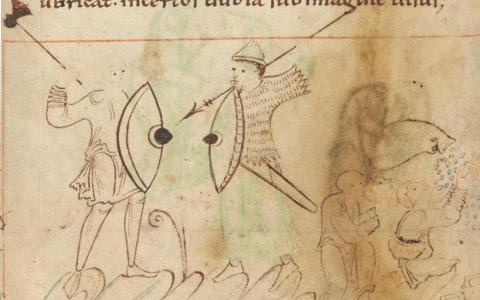 ubricat· incertos dubia sub imagine uisus;